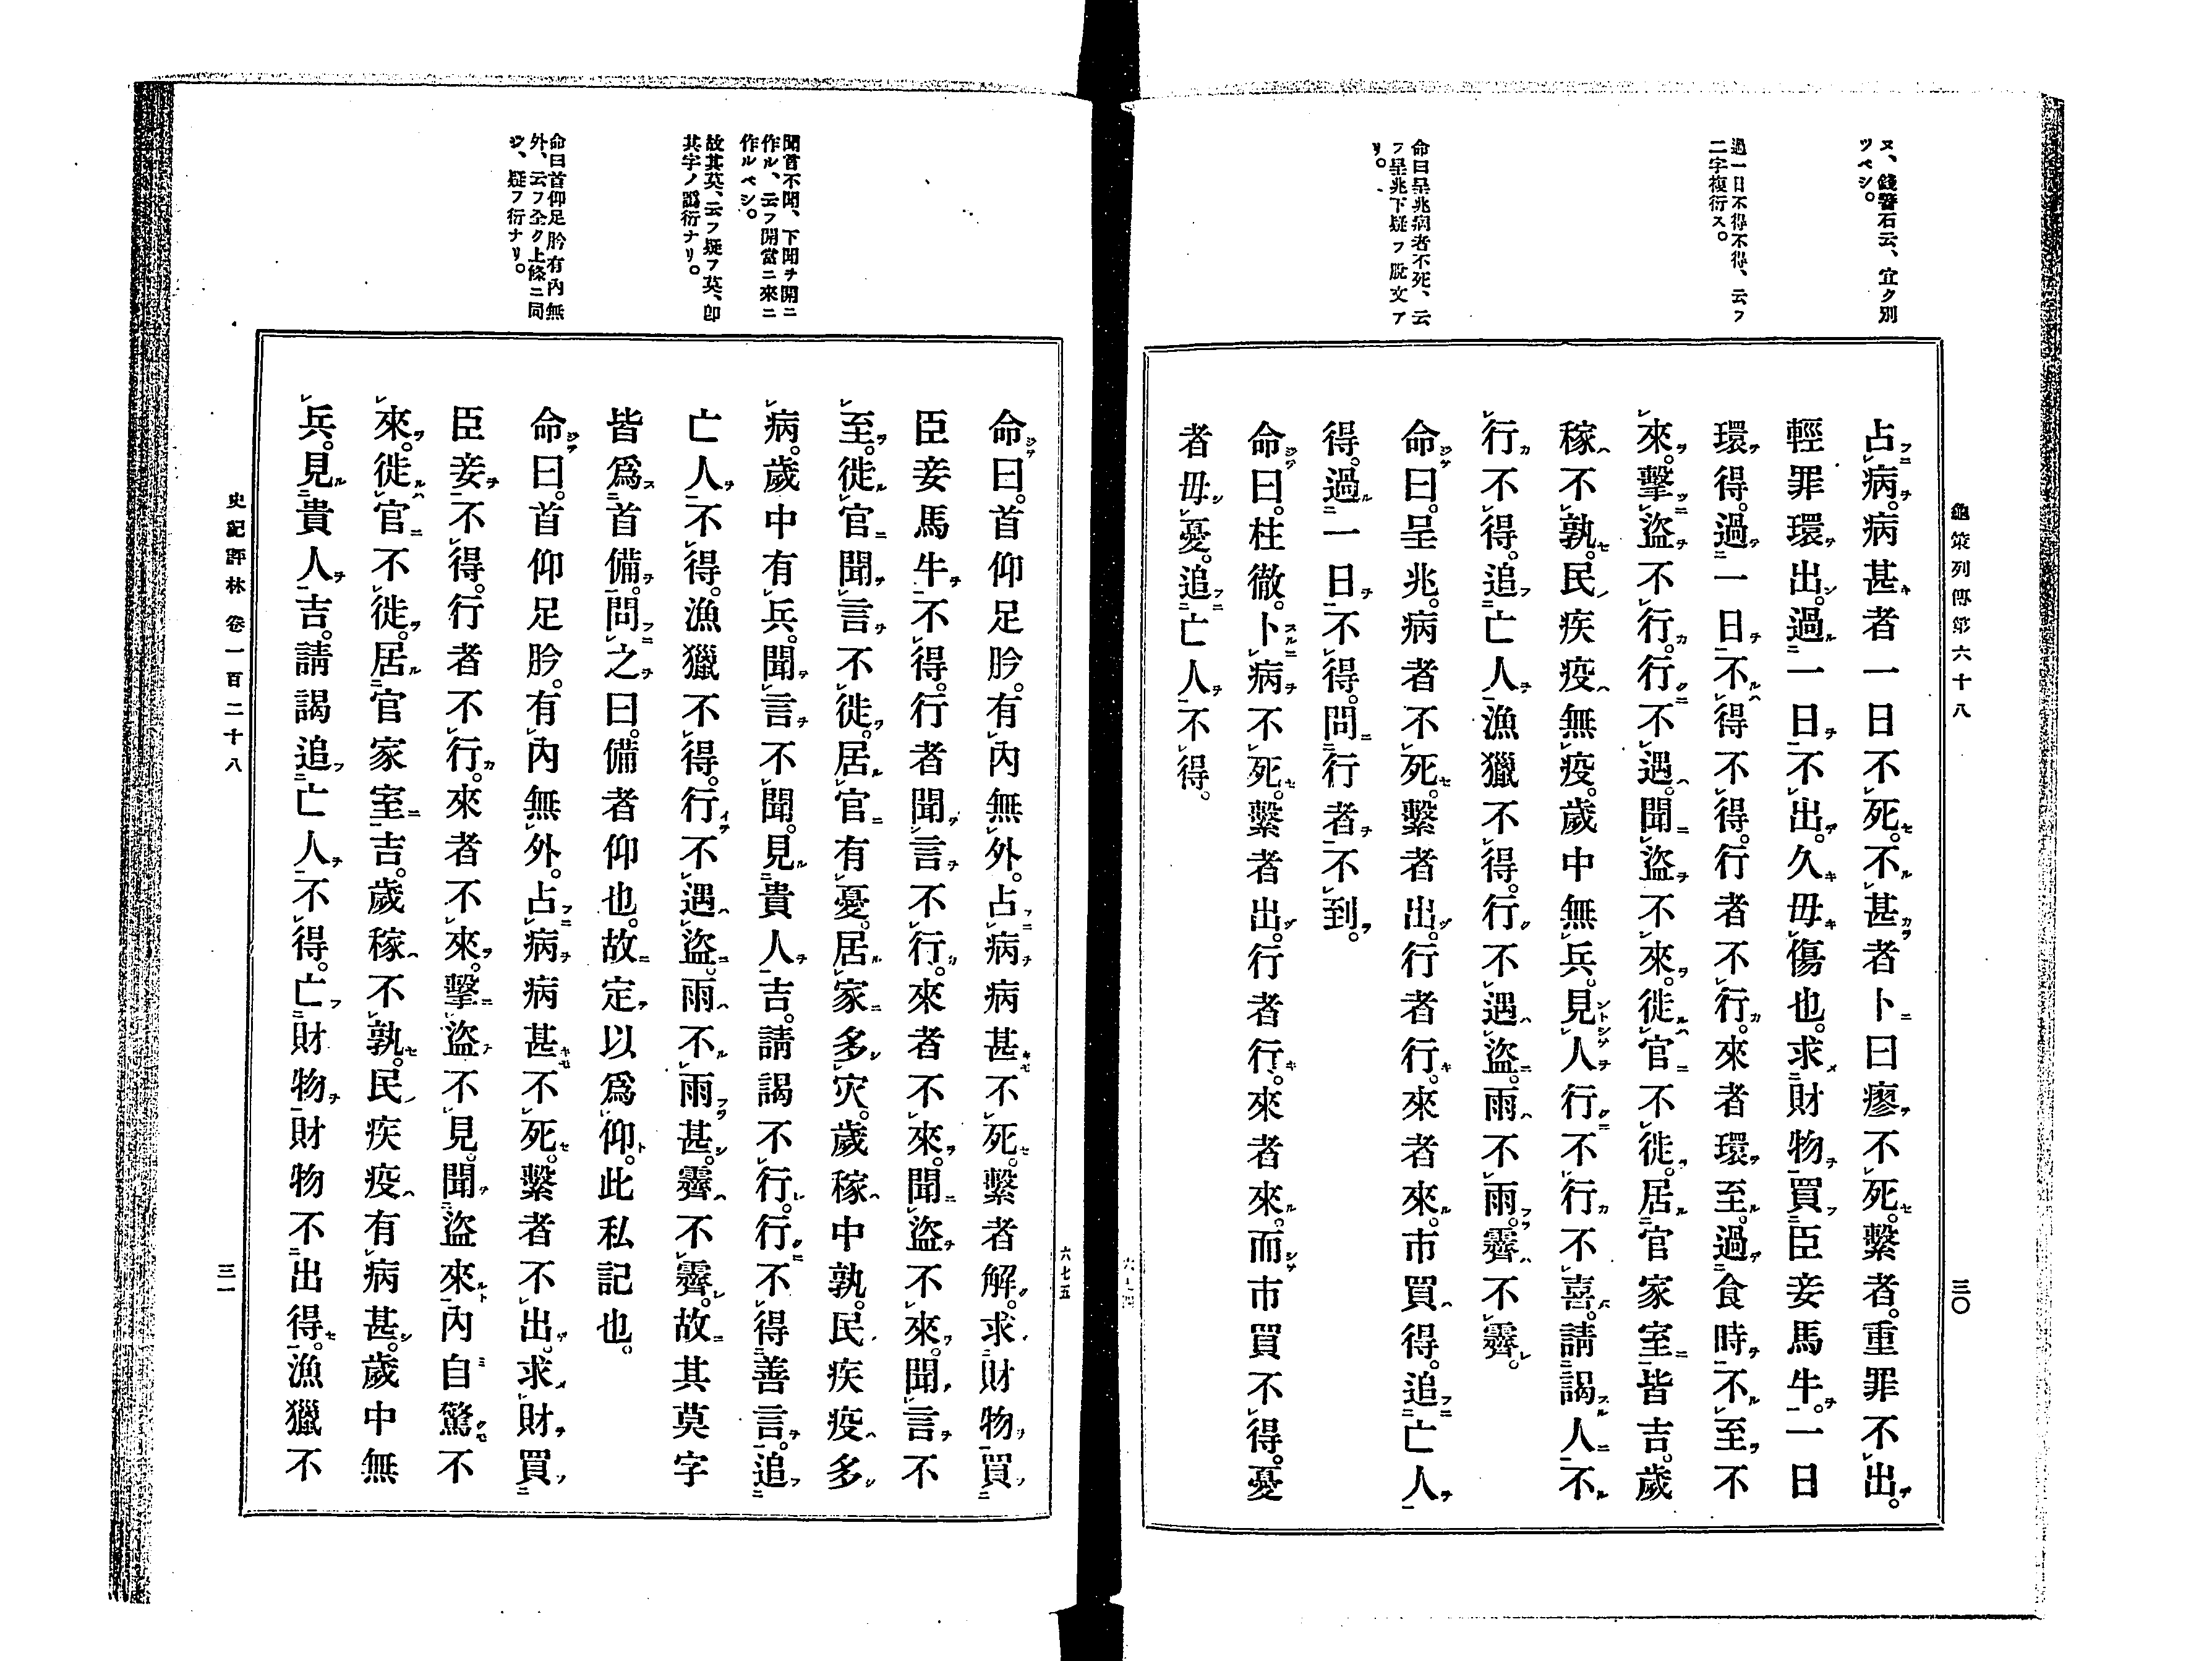 龜策列傳第六十八
三〇
ヌ、錢警石云、宜ク別
ツベシ。
過一日不得不得、云フ
二字複衍ス。
命曰呈兆病者不死、云
フ呈兆下疑フ脫文ア
リ。
占病。病甚者一日不死。不甚者卜曰瘳不死。繫者。重罪不出。
輕罪環出。過一日不出。久毋傷也。求財物買臣妾馬牛。一日
環得。過一日不得不得。行者不行。來者環至。過食時不至不
來。擊盜不行。行不遇。聞盜不來。徙官不徙。居官家室皆吉。歲
稼不孰。民疾疫無疫。歲中無兵。見人行不行不喜。請謁人不
行不得。追亡人漁獵不得。行不遇盜。雨不雨。霽不霽。
命曰。呈兆。病者不死。繫者出。行者行。來者來。市買得。追亡人
得。過一日不得。問行者不到。
命曰。柱徹。卜病不死。繫者出。行者行。來者來。而市買不得。憂
者毋憂。追亡人不得。
六七四
六七五
聞言不聞、下聞チ開ニ
作ル、云フ開當ニ來ニ
作ルベシ。
故其莫、云フ疑フ莫、卽
其字ノ譌衍ナリ。
命曰首仰足肣有內無
外、云フ全ク上條ニ同
ジ、疑フ衍ナリ。
命曰。首仰足肣。有內無外。占病病甚不死。繫者解。求財物買
臣妾馬牛不得。行者聞言不行。來者不來。聞盜不來。聞言不
至。徙官聞言不徙。居官有憂。居家多災。歲稼中孰。民疾疫多
病。歲中有兵。聞言不聞。見貴人吉。請謁不行。行不得善言。追
亡人不得。漁獵不得。行不遇盜。雨不雨甚。霽不霽。故其莫字
皆爲首備。問之曰。備者仰也。故定以爲仰。此私記也。
命曰。首仰足肣。有內無外。占病病甚不死。繫者不出。求財買
臣妾不得。行者不行。來者不來。擊盜不見。聞盜來內自驚不
來。徙官不徙。居官家室吉。歲稼不孰。民疾疫有病甚。歲中無
兵。見貴人吉。請謁追亡人不得。亡財物財物不出得。漁獵不
史記評林 卷一百二十八
三一